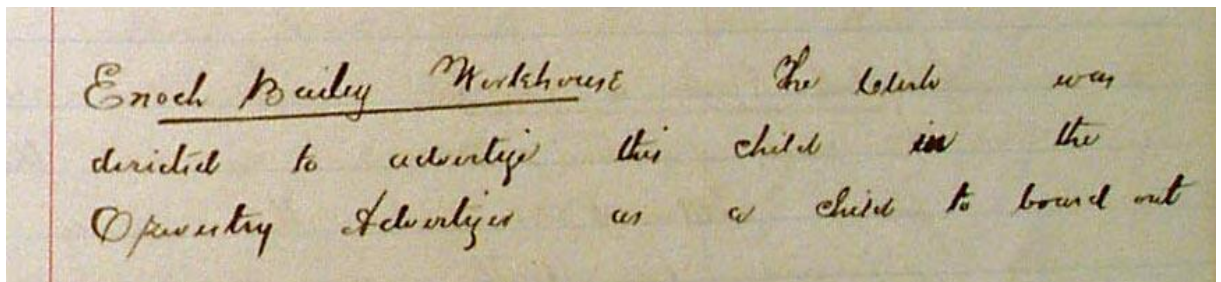 Enoch Bailey Workhouse The Clerk was
directed to advertise this child in the
Oswestry Advertizer as a child to board out